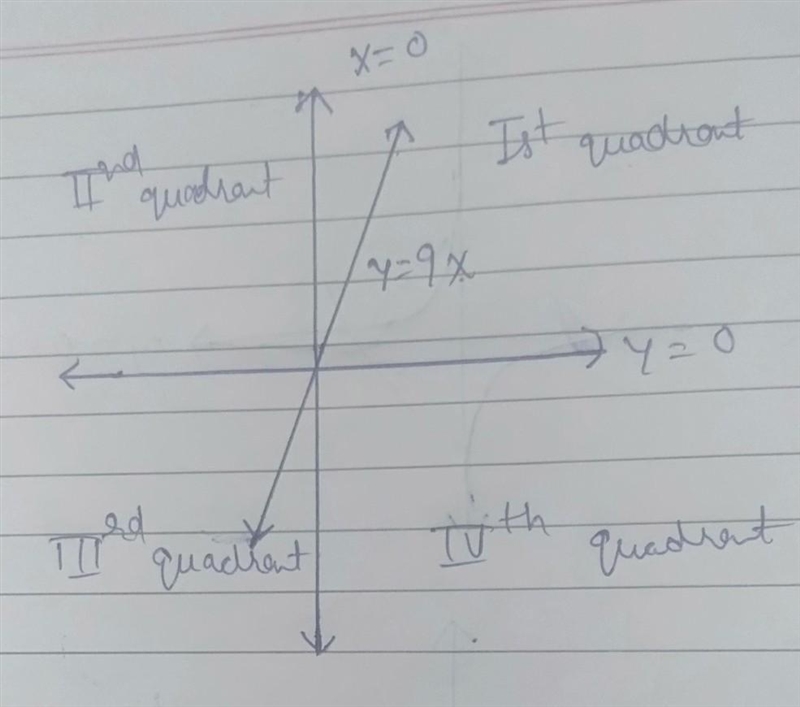 x=0
Ist quadrant
IInd quadrant
y=9x
y=0
IIIrd quadrant
IVth quadrant